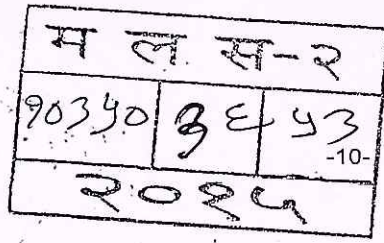 म ल स-२
१०३५० ३६ ५३
-10-
२०१५